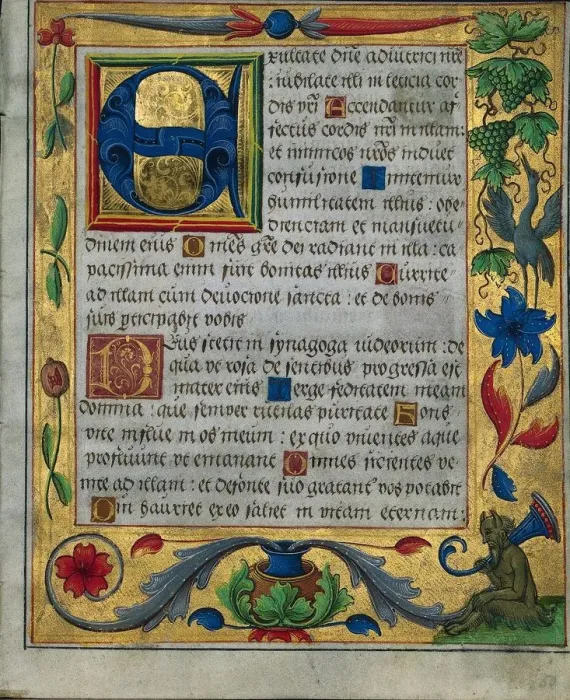 Exultate dñe adiutrici nr̃e
: iubilate illi in leticia cor
dis vr̃i Accendantur af
fectus cordis nr̃i in illam:
et inimicos nr̃os induet
confusione Imitemur
humilitatem illius : obe
dienciam et mansuetu
dinem eius Omẽs gr̃e dei radiant in illa : ca
pacissima enim fuit bonitas illius Currite
ad illam cum deuocione sancta : et de bonis
suis participabit vobis
Deus stetit in synagoga iudeorum : de
qua vt rosa de sentibus progressa est
mater eius Terge feditatem meam
domina : que semper rutilas puritate Fons
vite influe in os meum : ex quo viuentes aque
profluunt et emanant Omnes sicientes ve
nite ad illam : et de fonte suo gratant̃ vos potabit
Qui hauriet ex eo saliet in vitam eternam :